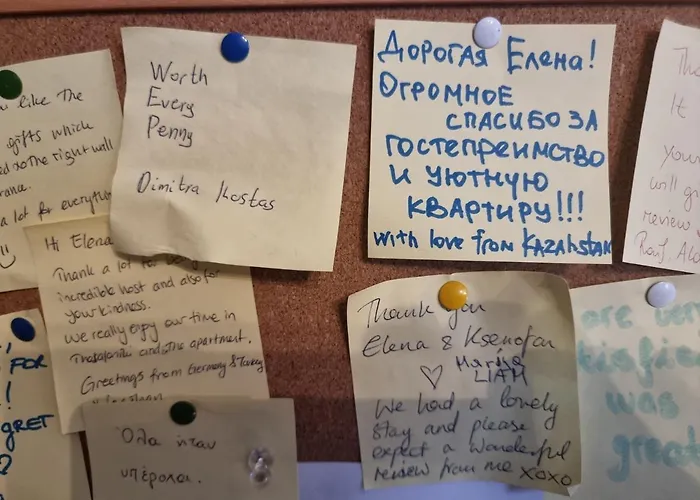 like The
gifts which
the right wall
a lot for everything
Worth
Every
Penny
Dimitra Kostas
Дорогая Елена!
Огромное
спасибо за
гостепреимство
и уютную
квартиру!!!
with love from KAZAhstan
It
your
will g
review
Hi Elena
Thank a lot for
incredible host and also for
your kindness.
We really enjoy our time in
and the apartment.
Greetings from Germany & Turkey
FOR
!
GRET
Όλα ήταν
υπέροχα.
Thank you
Elena & Ksenofon
♡ Marika
LIAM
We had a lovely
stay and please
expect a wonderful
review from me xoxo
are very
was
great